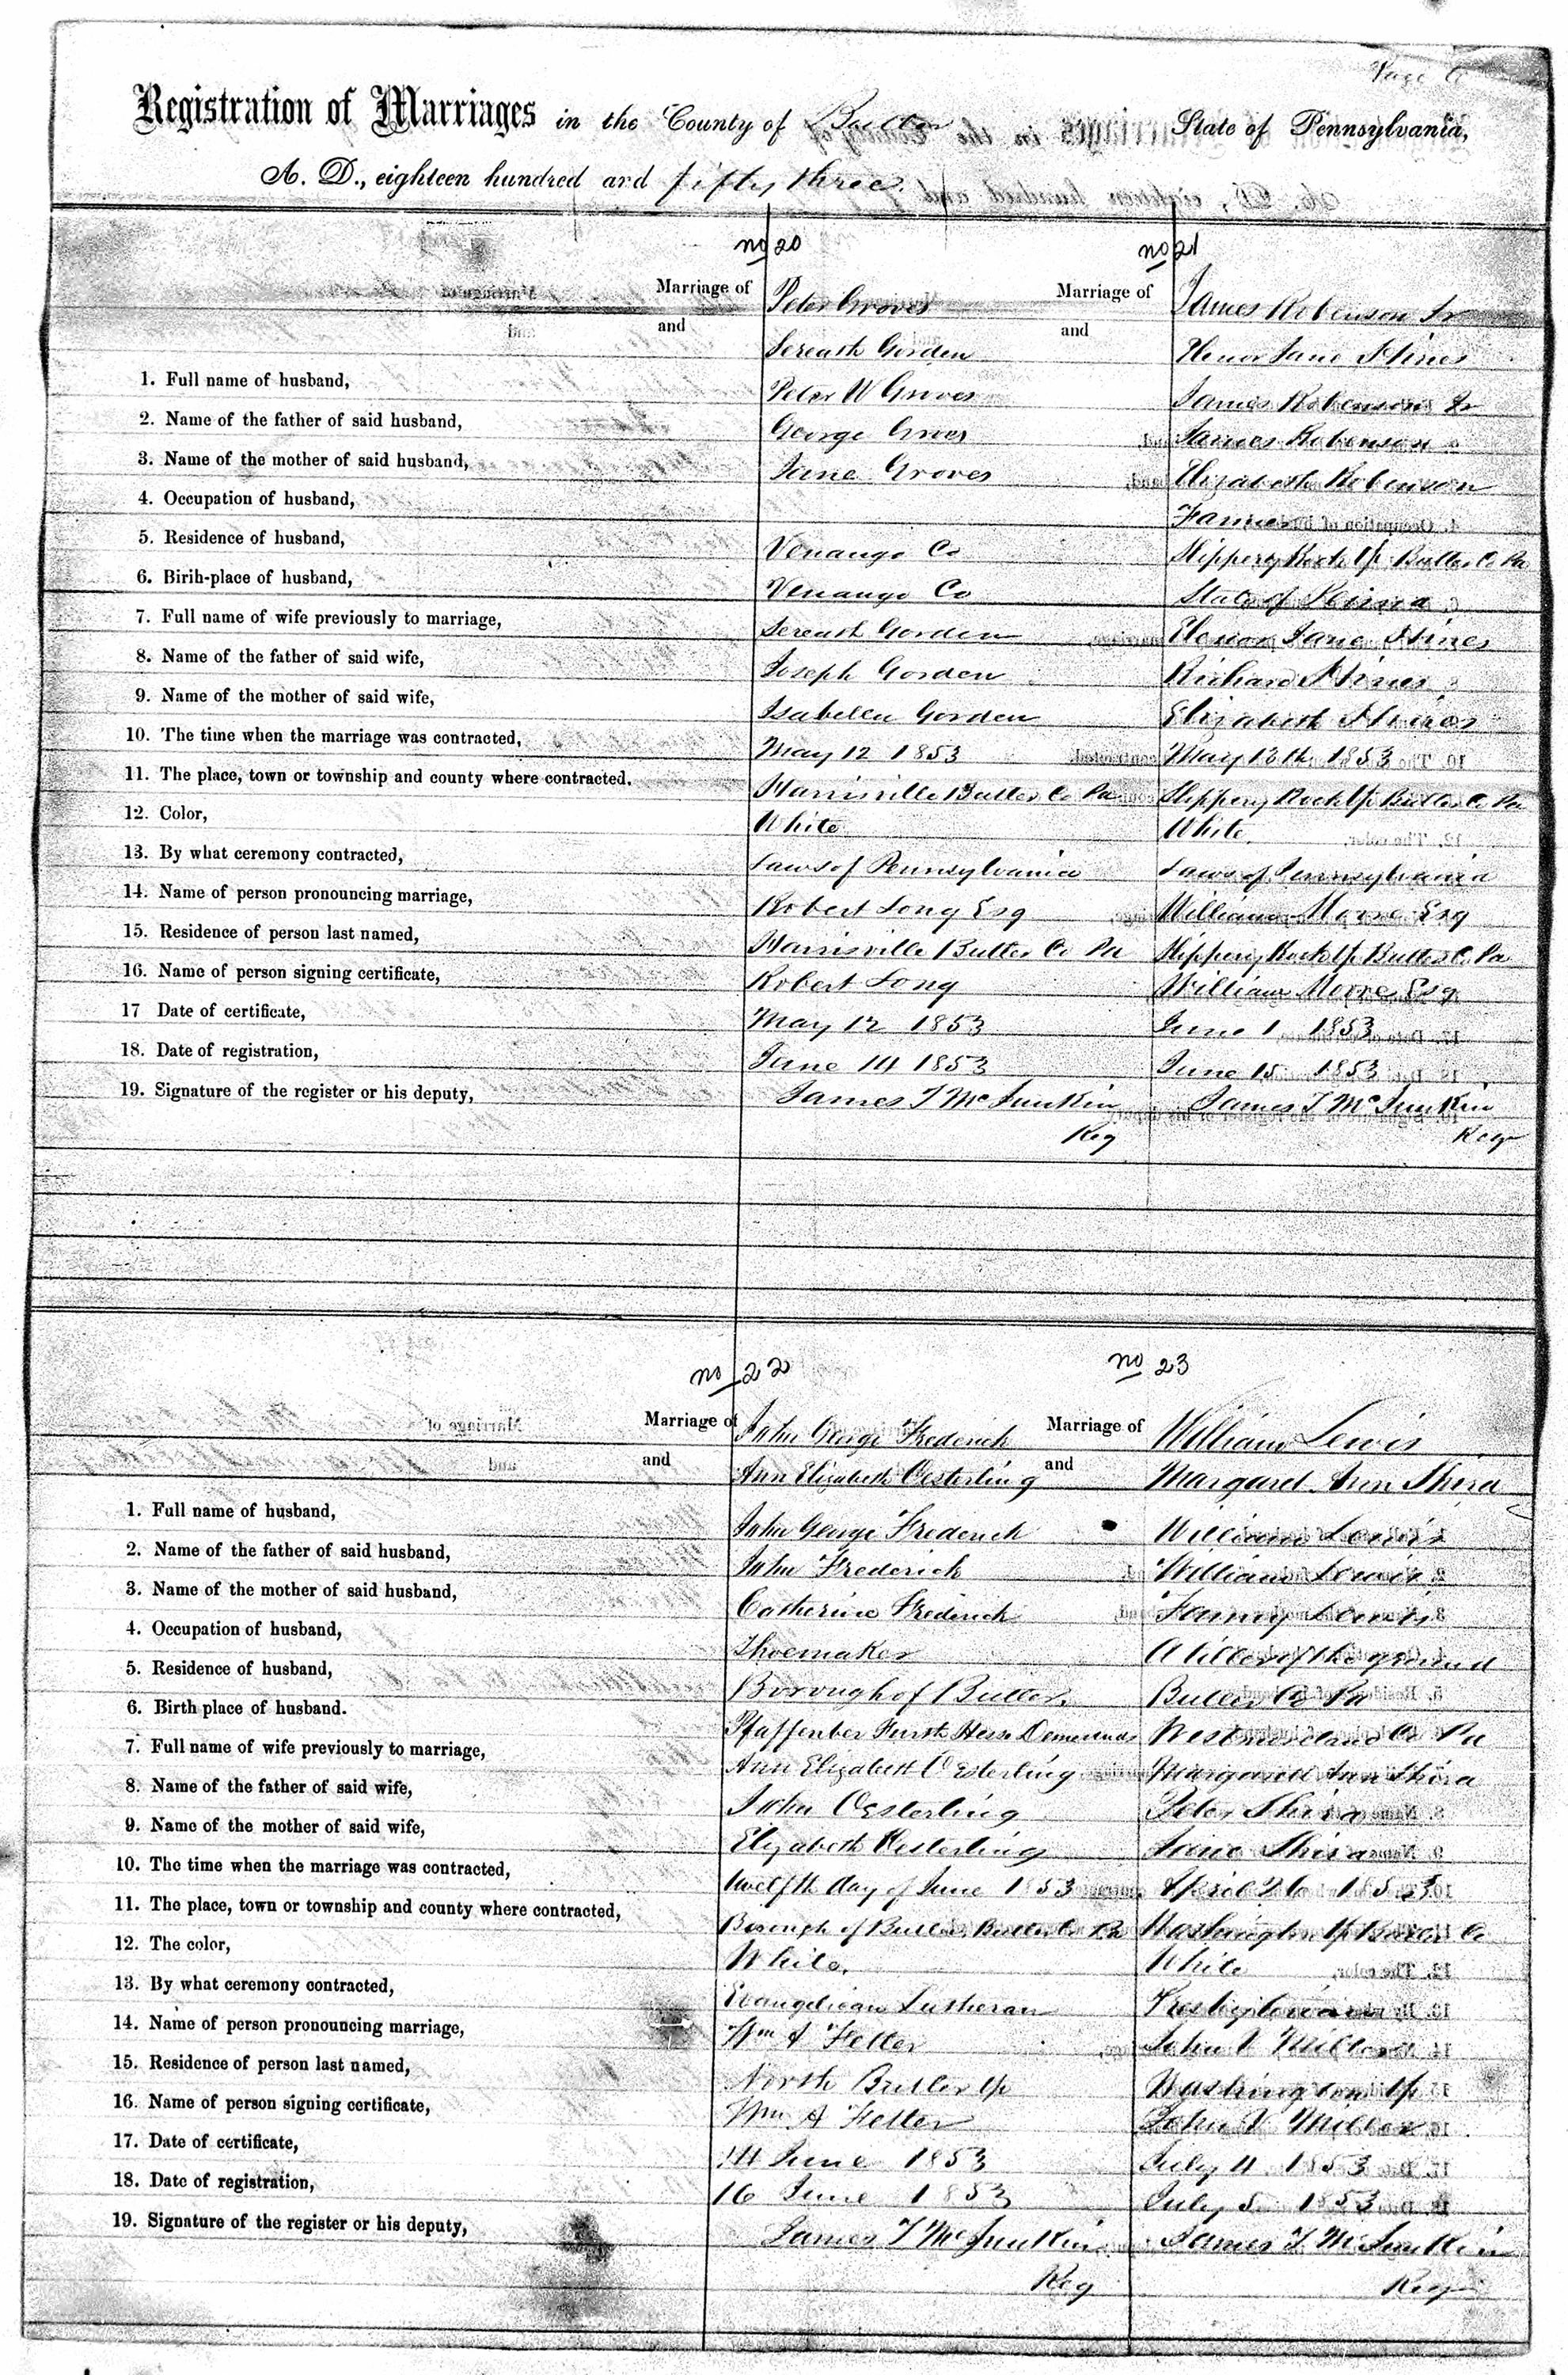 Page 6
Registration of Marriages in the County of Butler State of Pennsylvania,
A. D., eighteen hundred and fifty three.
no 20 no 21
Marriage of Peter Groves Marriage of James Robenson Jr
and Sereath Gorden and Elenor Jane Stiner
1. Full name of husband, Peter W Groves James Robenson Jr
2. Name of the father of said husband, George Groves James Robenson
3. Name of the mother of said husband, Jane Groves Elizabeth Robenson
4. Occupation of husband, Farmer
5. Residence of husband, Venango Co Slippery Rock tp Butler Co Pa
6. Birih-place of husband, Venango Co State of Penna
7. Full name of wife previously to marriage, Sereath Gorden Elenor Jane Stiner
8. Name of the father of said wife, Joseph Gorden Richard Stiner
9. Name of the mother of said wife, Isabella Gorden Elizabeth
10. The time when the marriage was contracted, May 12 1853 May 13th 1853
11. The place, town or township and county where contracted. Harrisville Butler Co Pa Slippery Rock tp Butler Co Pa
12. Color, White White
13. By what ceremony contracted, Laws of Pennsylvania Laws of Pennsylvania
14. Name of person pronouncing marriage, Robert Long Esq William Morre Esq
15. Residence of person last named, Harrisville Butler Co Pa Slippery Rock tp Butler Co Pa
16. Name of person signing certificate, Robert Long William Morre Esq
17 Date of certificate, May 12 1853 June 1 1853
18. Date of registration, June 14 1853 June 15 1853
19. Signature of the register or his deputy, James T McJunkin James T McJunkin
Reg Reg
no 22 no 23
Marriage of John George Frederick Marriage of William Lewis
and Ann Elizabeth Oesterling and Margaret Ann Shira
1. Full name of husband, John George Frederick William Lewis
2. Name of the father of said husband, John Frederick William Lewis
3. Name of the mother of said husband, Catherine Frederick Fanny Lewis
4. Occupation of husband, Shoemaker A tiller of the ground
5. Residence of husband, Borough of Butler. Butler Co Pa
6. Birth place of husband. Hessn Westmoreland Co Pa
7. Full name of wife previously to marriage, Ann Elizabeth Oesterling Margaret Ann Shira
8. Name of the father of said wife, John Oesterling Peter Shira
9. Name of the mother of said wife, Elizabeth Oesterling Shira
10. The time when the marriage was contracted, twelfth day of June 1853 April 26 1853
11. The place, town or township and county where contracted, Borough of Butler Butler Co Pa Washington tp Butler Co
12. The color, White. White
13. By what ceremony contracted, Evangelican Lutheran Presbyterian
14. Name of person pronouncing marriage, Wm A Fetter John V Miller
15. Residence of person last named, North Butler tp Washington tp
16. Name of person signing certificate, Wm A Fetter John V Miller
17. Date of certificate, 14 June 1853 July 4 1853
18. Date of registration, 16 June 1853 July 5 1853
19. Signature of the register or his deputy, James T McJunkin James T McJunkin
Reg Reg